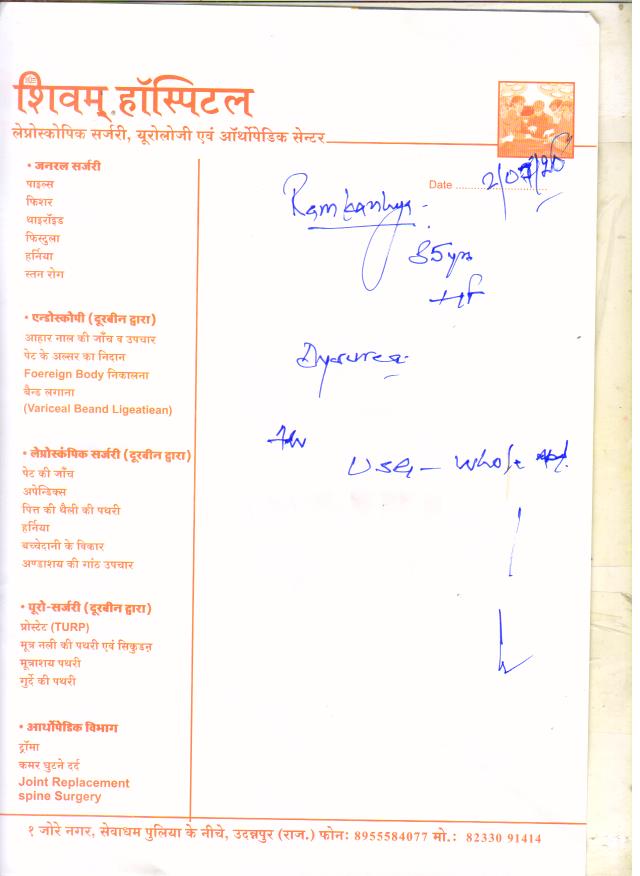 शिवम् हॉस्पिटल
लेप्रोस्कोपिक सर्जरी, यूरोलोजी एवं ऑर्थोपेडिक सेन्टर
• जनरल सर्जरी
पाइल्स
फिशर
थाइरॉइड
फिस्टुला
हर्निया
स्तन रोग
• एन्डोस्कोपी (दूरबीन द्वारा)
आहार नाल की जाँच व उपचार
पेट के अल्सर का निदान
Foereign Body निकालना
बैन्ड लगाना
(Variceal Beand Ligeatiean)
• लेप्रोस्कंपिक सर्जरी (दूरबीन द्वारा)
पेट की जाँच
अपेन्डिक्स
पित्त की थैली की पथरी
हर्निया
बच्चेदानी के विकार
अण्डाशय की गांठ उपचार
• यूरो-सर्जरी (दूरबीन द्वारा)
प्रोस्टेट (TURP)
मूत्र नली की पथरी एवं सिकुडन
मूत्राशय पथरी
गुर्दे की पथरी
• आर्थोपेडिक विभाग
ट्रॉमा
कमर घुटने दर्द
Joint Replacement
spine Surgery
Date 2/07/20
Ramkanhya
35 yrs
Dysurea
Adv
USG - Whole abd.
१ जोरे नगर, सेवाधम पुलिया के नीचे, उदन्नपुर (राज.) फोनः 8955584077 मो.: 82330 91414